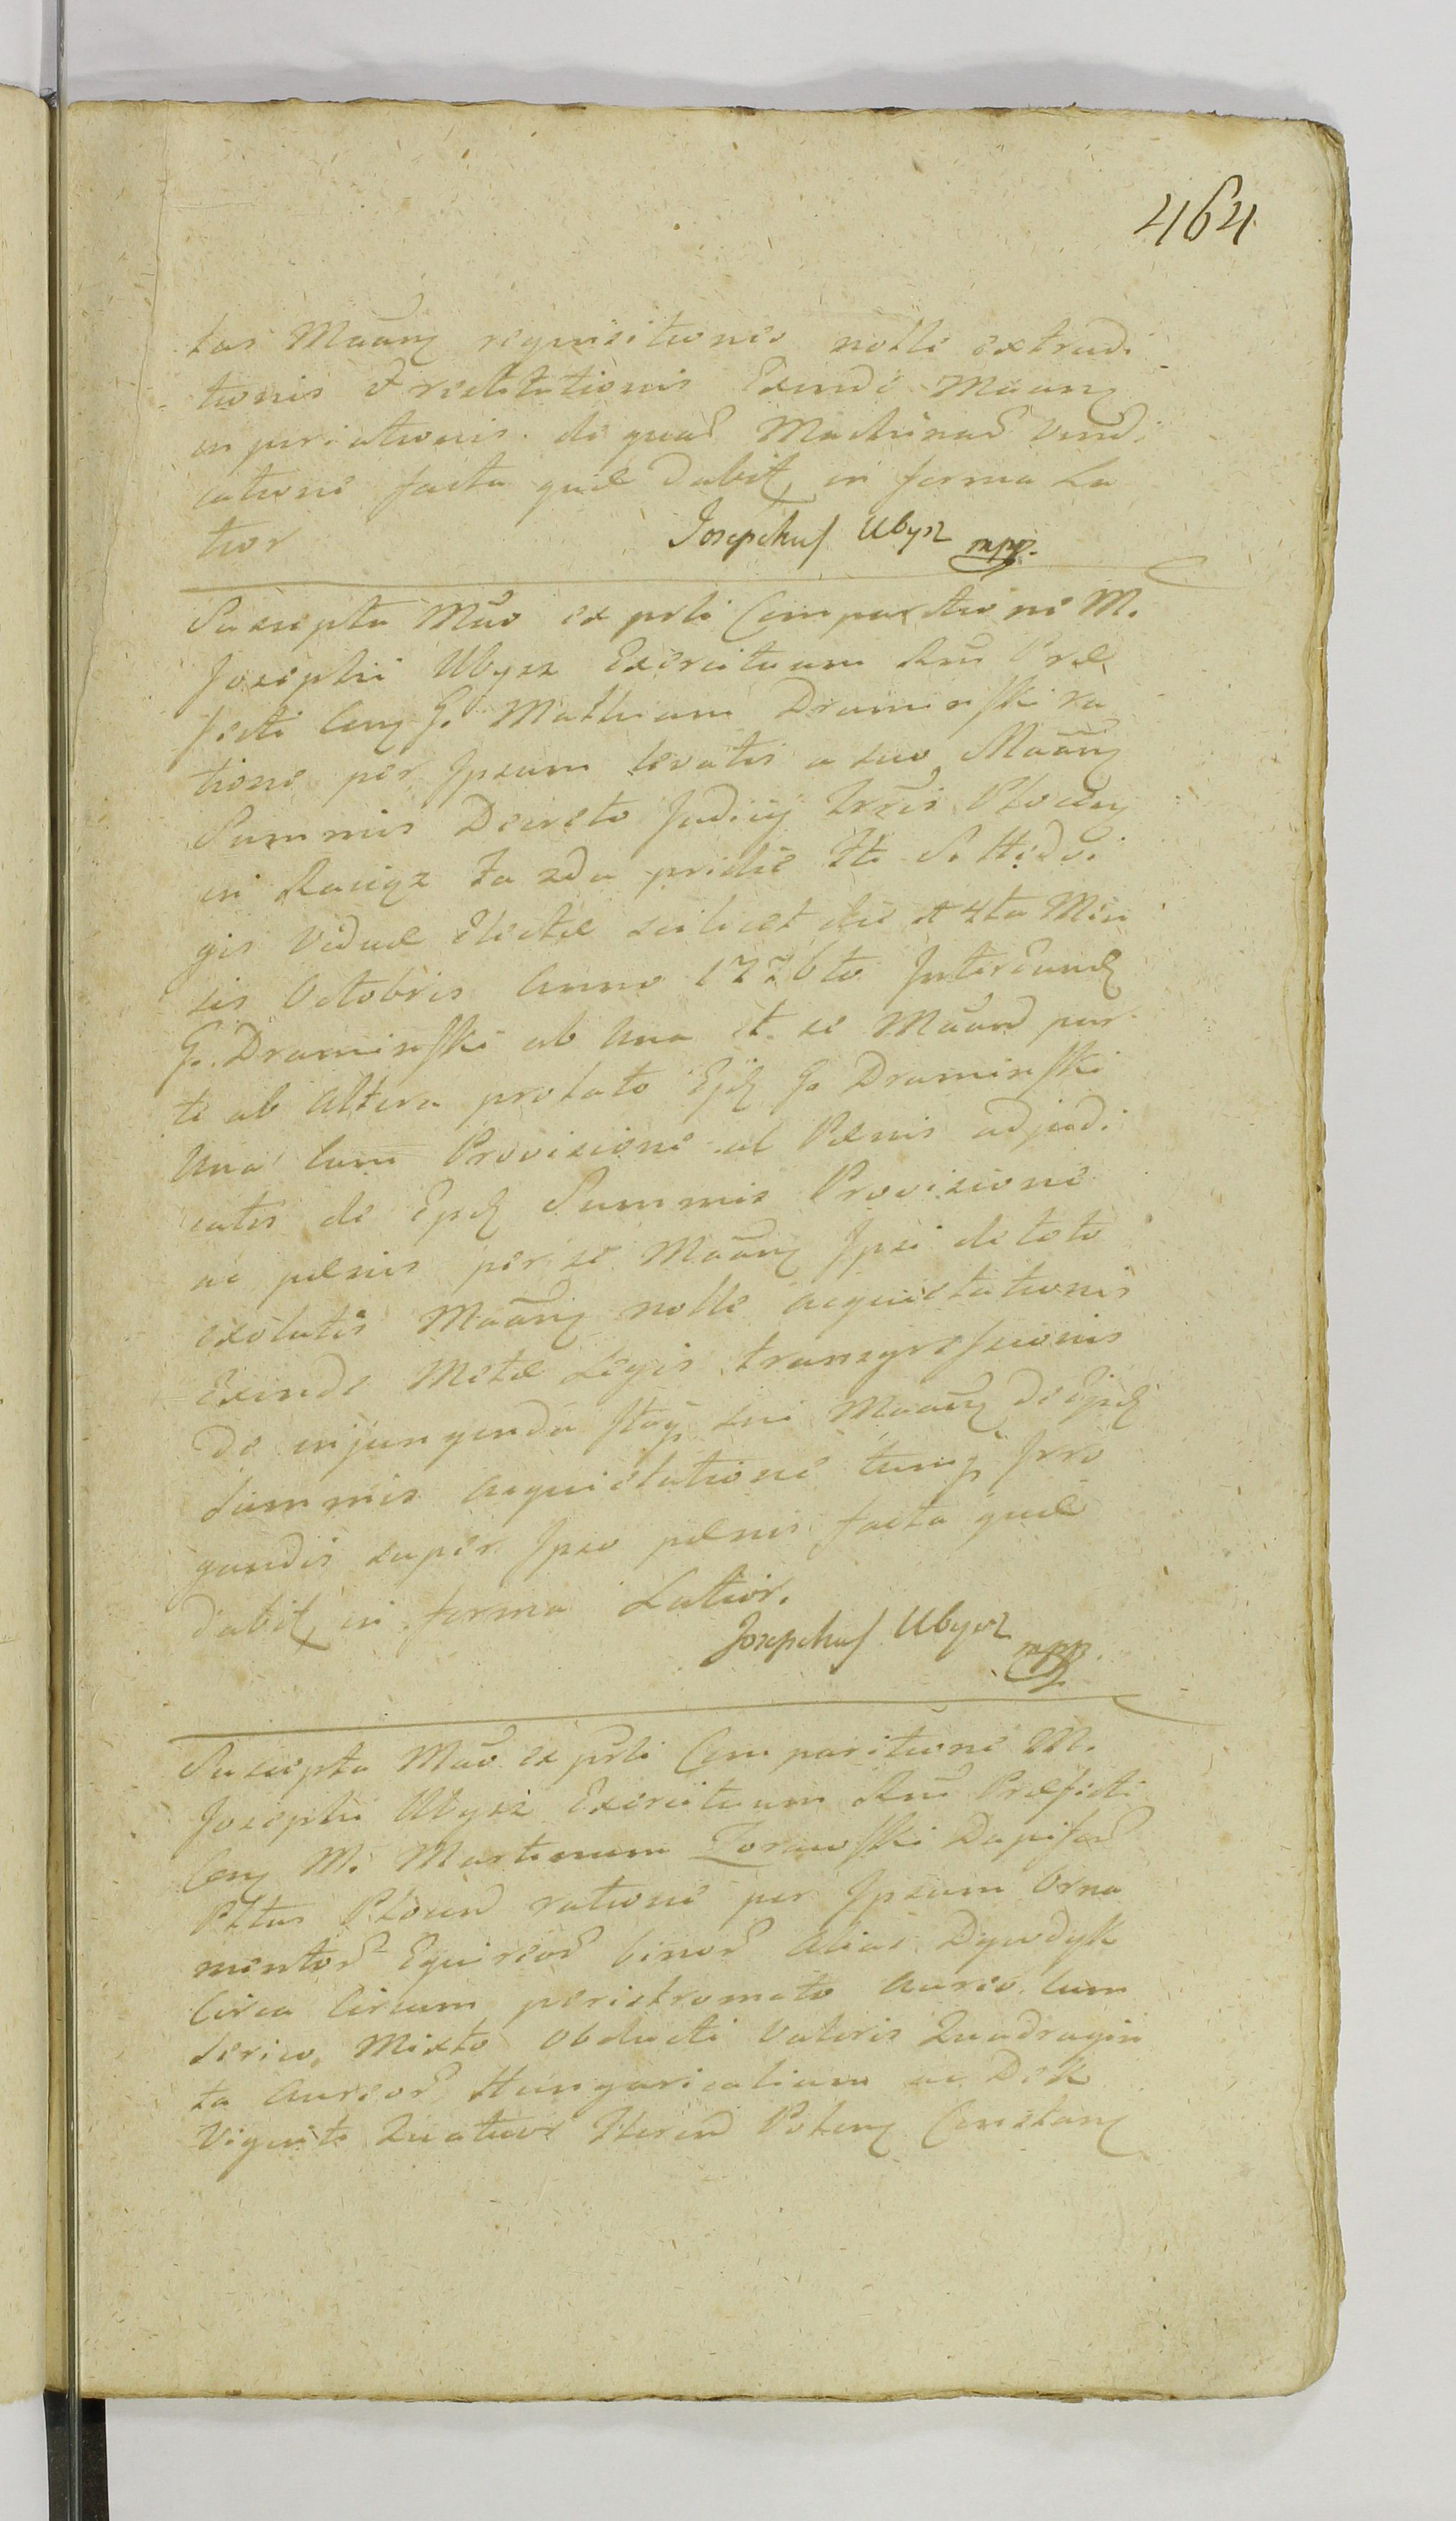 464
tas Maanz requisitiones nolle extradi
tionis & restitutionis Exinde Maanz
injuriationis. de quad Machinad vindi
catione facta quæ dabit, in forma La
tior
Josephus Ubysz mpp.
Suscepta Mão ex prli Comparitione M.
Josephi Ubysz Exercituum Rni Præ
fecti Conz G. Mathiam Draminski ra
tione per Ipsum levatis a suo Maanz
Summis Decreto Judicij Trris Plocen
in Raciąz Fa 2da pridie Fti S. Hedvi
gis Viduæ Electæ scilicet die 14ta Men
sis Octobris Anno 1776to Inter Eund
G. Draminski ab Una et se Maand par
te ab Altera prolato Ejd G. Draminski
Una cum Provisione ac Pœnis adjudi
catis de Ejsd Summis Provisione
ac pœnis per se Maanz Ipsi de toto
exolutis Maanz nolle acquietationis
Exinde Metæ Legis transgressionis
De injungenda sui Maanz de Ejsd
Summis acquietatione tumq Irro
gandis super Ipso pœnis facta quæ
dabit, in forma Latior.
Josephus Ubysz mpp.
Suscepta Mão ex prli Comparitione M.
Josephi Ubysz Exercituum Rni Præfecti
Conz M. Martinum Zorawski Dapifer
Pttus Plocen ratione per Ipsum Orna
mentor Equireor binor Alias Dywdyk
Circa Circum peristromato Aureo cum
Serico, Mixto obducti Valoris Quadragin
ta Aureor Hungaricalium ac Dek
Viginti Quatuor Floren Polon Constanz